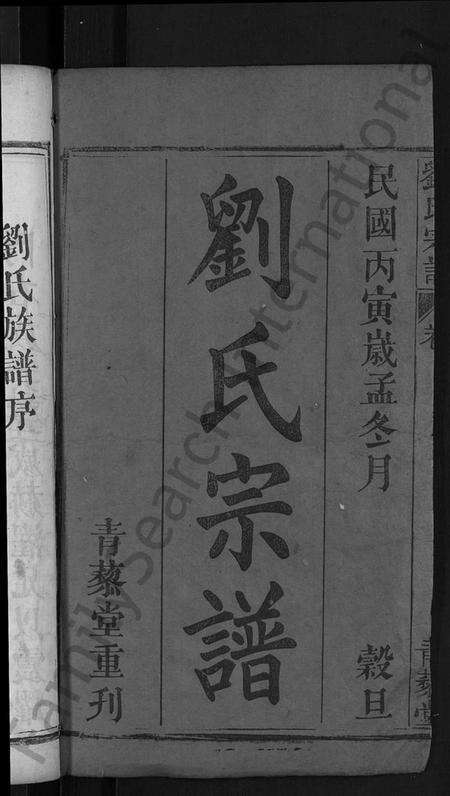 劉氏宗譜
民國丙寅歲孟冬月
穀旦
劉氏宗譜
青藜堂重刊
青藜堂
劉氏族譜序
FamilySearch International